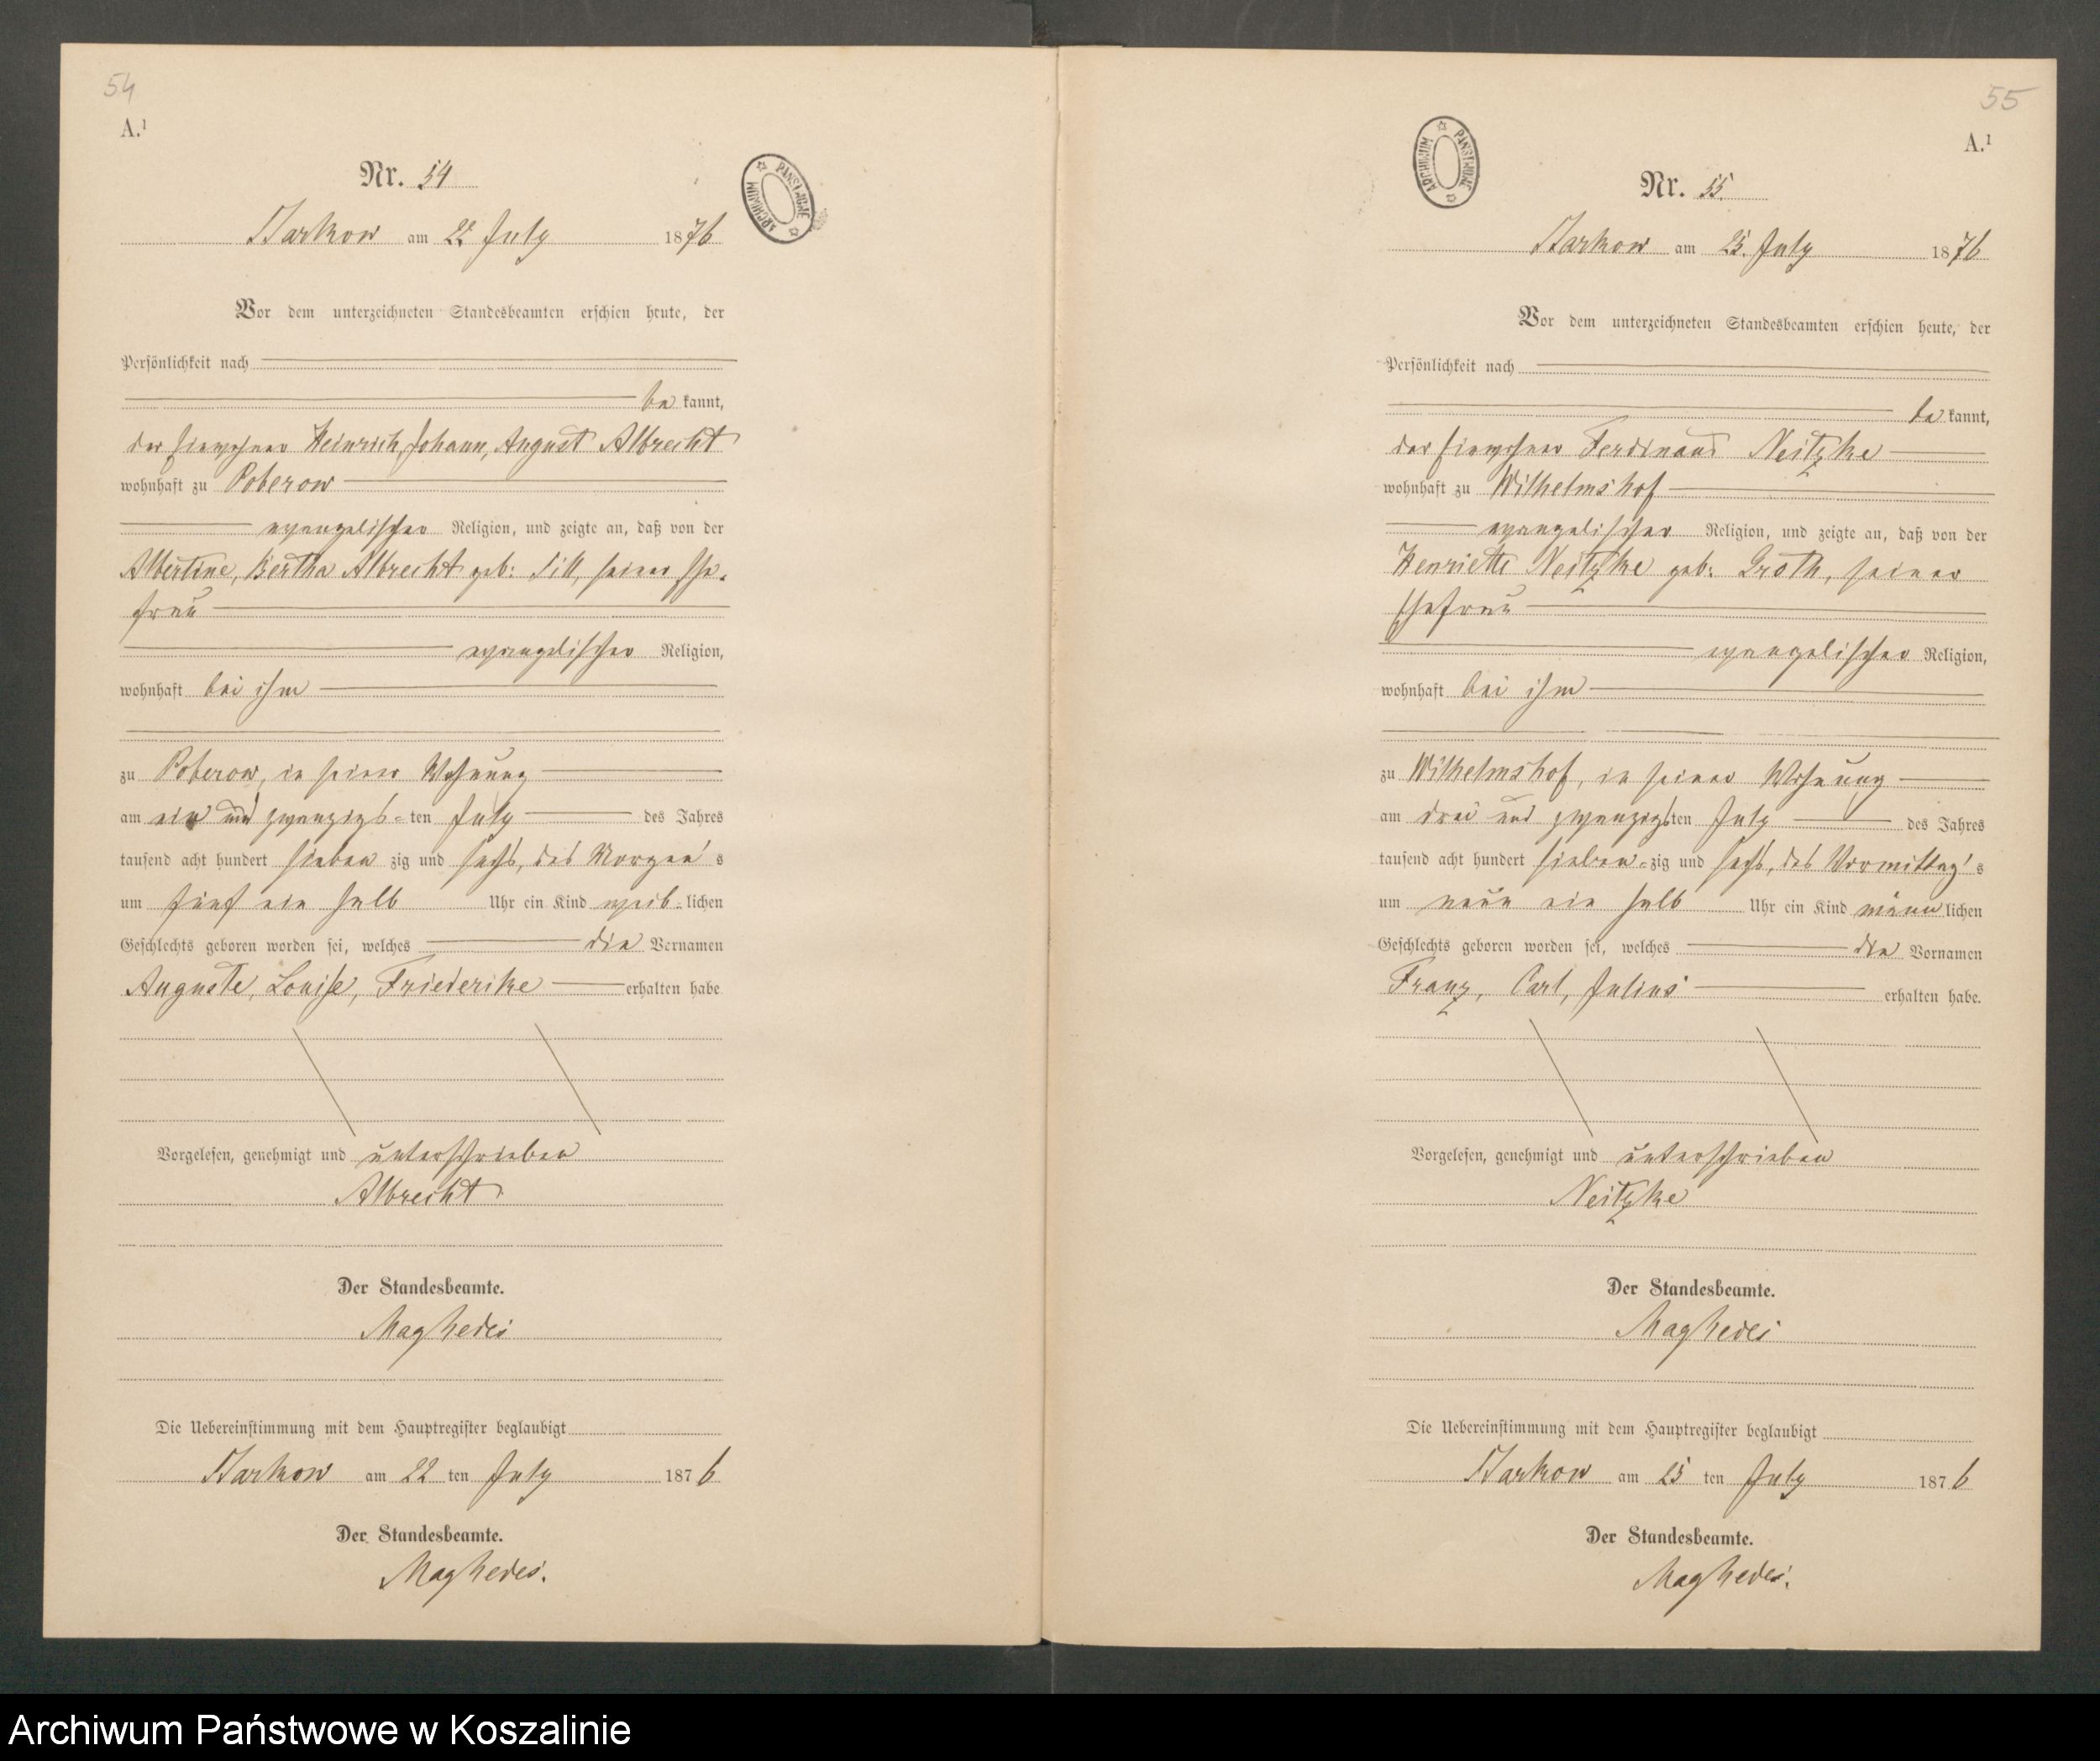 54
A.¹
Nr. 54
Barkow am 22 July 1876
ARCHIWUM PAŃSTWOWE
Vor dem unterzeichneten Standesbeamten erschien heute, der
Persönlichkeit nach
be kannt,
der Einwohner Heinrich, Johann, August Albrecht
wohnhaft zu Poberow
evangelischer Religion, und zeigte an, daß von der
Albertine, Bertha Albrecht geb: Till, seiner Ehe-
frau
evangelischer Religion,
wohnhaft bei ihm
zu Poberow, in seiner Wohnung
am ein und zwanzigs-ten July des Jahres
tausend acht hundert sieben zig und sechs, des Morgen's
um fünf ein halb Uhr ein Kind weib-lichen
Geschlechts geboren worden sei, welches die Vornamen
Auguste, Louise, Friederike erhalten habe
Vorgelesen, genehmigt und unterschrieben
Albrecht
Der Standesbeamte.
Die Uebereinstimmung mit dem Hauptregister beglaubigt
Barkow am 22 ten July 1876
Der Standesbeamte.
55
A.¹
ARCHIWUM PAŃSTWOWE
Nr. 55.
Barkow am 25. July 1876
Vor dem unterzeichneten Standesbeamten erschien heute, der
Persönlichkeit nach
be kannt,
der Einwohner Ferdinand Neitzke
wohnhaft zu Wilhelmshof
evangelischer Religion, und zeigte an, daß von der
Henriette Neitzke geb: Groth, seiner
Ehefrau
evangelischer Religion,
wohnhaft bei ihm
zu Wilhelmshof, in seiner Wohnung
am drei und zwanzigsten July des Jahres
tausend acht hundert sieben-zig und sechs, des Vormittag's
um neun ein halb Uhr ein Kind männ lichen
Geschlechts geboren worden sei, welches die Vornamen
Franz, Carl, Julius erhalten habe.
Vorgelesen, genehmigt und unterschrieben
Neitzke
Der Standesbeamte.
Die Uebereinstimmung mit dem Hauptregister beglaubigt
Barkow am 25 ten July 1876
Der Standesbeamte.
Archiwum Państwowe w Koszalinie